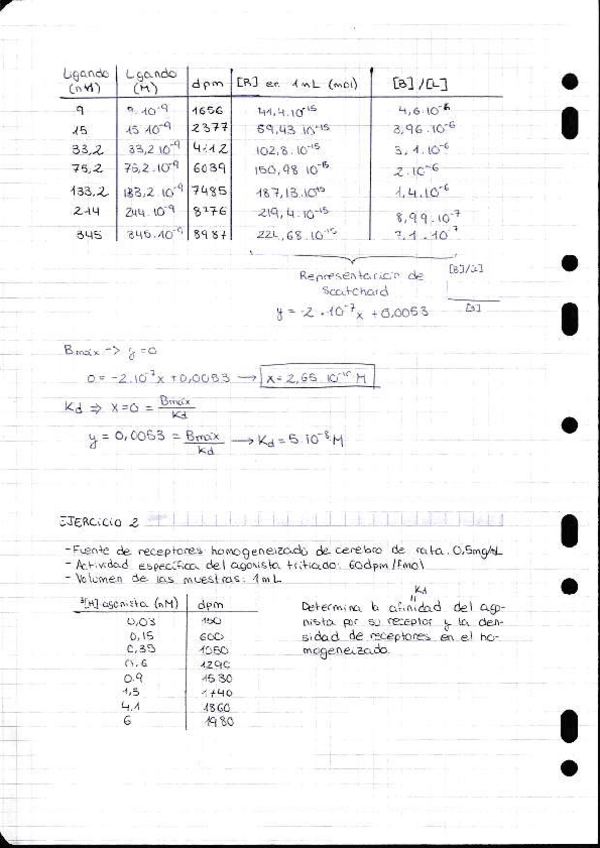 Ligando (nM) Ligando (M) dpm [R] en 1 mL (mol) [B]/[L]
9 9·10⁻⁹ 1656 41,4·10⁻¹⁵ 4,6·10⁻⁶
15 15·10⁻⁹ 2377 59,43·10⁻¹⁵ 3,96·10⁻⁶
33,2 33,2·10⁻⁹ 4112 102,8·10⁻¹⁵ 3,1·10⁻⁶
75,2 75,2·10⁻⁹ 6039 150,98·10⁻¹⁵ 2·10⁻⁶
133,2 133,2·10⁻⁹ 7485 187,13·10¹⁵ 1,4·10⁻⁶
214 214·10⁻⁹ 8776 219,4·10⁻¹⁵ 8,99·10⁻⁷
345 345·10⁻⁹ 8987 10⁻¹⁵
Representación de [B]/[L]
Scatchard
y = -2·10⁻⁷x + 0,0053 [B]
Bmáx -> y=0
0 = -2·10⁷x + 0,0053 → x = 2,65·10⁻¹⁰ M
Kd ⇒ x=0 = Bmáx/Kd
y = 0,0053 = Bmáx/Kd → Kd = 5·10⁻⁸ M
EJERCICIO 2
- Fuente de receptores homogeneizado de cerebro de rata: 0,5mg/mL
- Actividad específica del agonista tritiado: 60dpm/fmol
- Volumen de las muestras: 1mL
³[H] agonista (nM) dpm
0,03 150
0,15 600
0,39 1050
0,6 1290
0,9 1530
1,5 1740
4,1 1860
6 1980
Kd
"
Determina la afinidad del ago-
nista por su receptor y la den-
sidad de receptores en el ho-
mogeneizado.